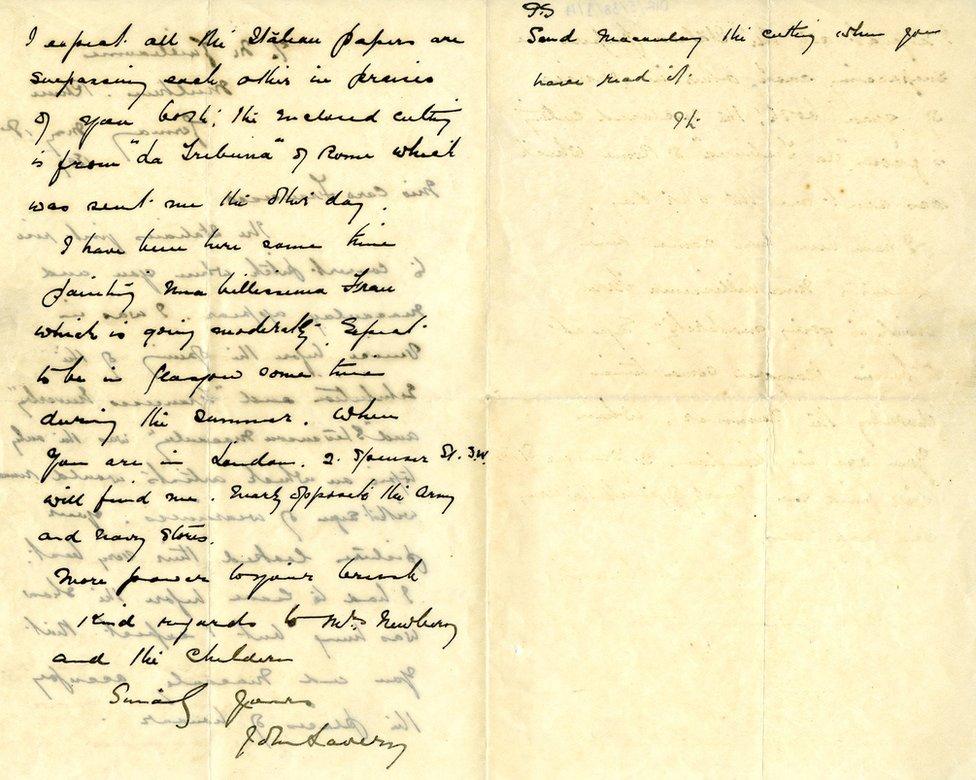 I expect all the Italian papers are
surpassing each other in praise
of you both; the enclosed cutting
is from "La Tribuna" of Rome which
was sent me the other day.
I have been here some time
painting una bellissima Frau
which is going moderately. Expect
to be in Glasgow some time
during the summer. When
you are in London. 2. Spenser St. S.W.
will find me. Nearly opposite the Army
and Navy Stores.
More power to your brush
Kind regards to Mrs Newbery
and the children
Sincerely yours
John Lavery
PS
Send Macaulay the cutting when you
have read it.
JL